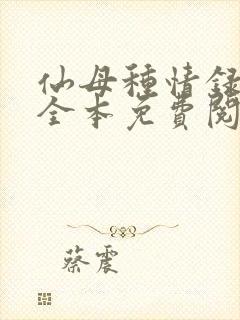 仙母種情録
全本免費閱
蔡震